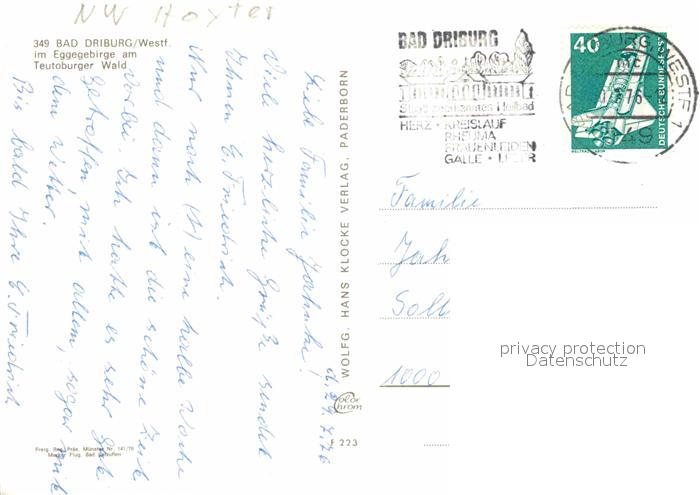 NW Hoxter
349 BAD DRIBURG/Westf.
im Eggegebirge am
Teutoburger Wald
BAD DRIBURG
Staatl. anerkanntes Heilbad
HERZ • KREISLAUF
RHEUMA
FRAUENLEIDEN
GALLE • LEBER
40
DEUTSCHE BUNDESPOST
WELTRAUMLABOR
d. 27.7.76
Liebe Familie Jahnke!
Viele herzliche Grüße sendet
Ihnen E. Friedrich.
Nur noch (½) eine halbe Woche
und dann ist die schöne Zeit
vorbei. Ich hatte es sehr gut
getroffen, mit allem, sogar mit
dem Wetter.
Bis bald Ihre E. Friedrich
WOLFG. HANS KLOCKE VERLAG, PADERBORN
Color
Chrom
F 223
Familie
Jah
Soll
1000
privacy protection
Datenschutz
Freig. Reg. Präs. Münster Nr. 141/76